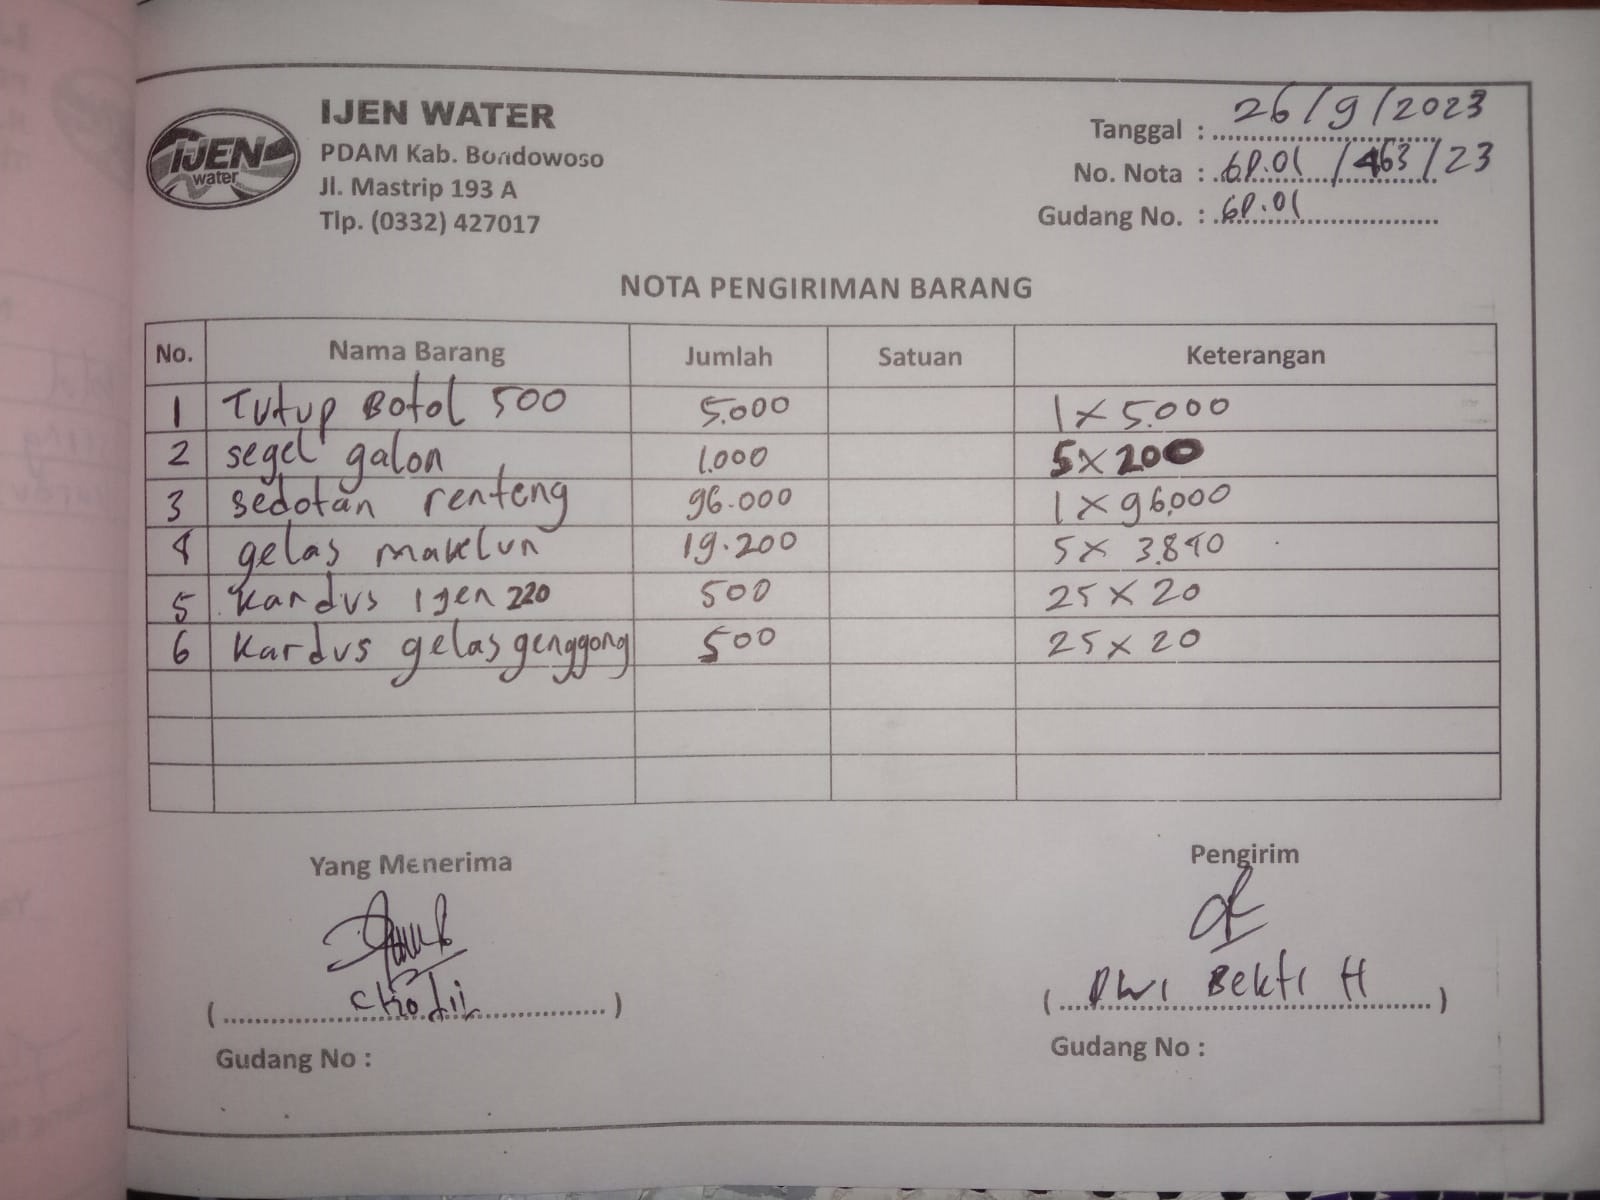 IJEN
water
IJEN WATER
PDAM Kab. Bondowoso
Jl. Mastrip 193 A
Tlp. (0332) 427017
Tanggal : 26/9/2023
No. Nota : 6P.01 /463/23
Gudang No. : 6P.01
NOTA PENGIRIMAN BARANG
No. Nama Barang Jumlah Satuan Keterangan
1 Tutup Botol 500 5.000 1 x 5.000
2 segel galon 1.000 5 x 200
3 Sedotan renteng 96.000 1 x 96.000
4 gelas makelun 19.200 5 x 3.840
5 Kardus Ijen 220 500 25 x 20
6 Kardus gelas genggong 500 25 x 20
Yang Menerima Pengirim
( ) ( Dwi Bekti H )
Gudang No : Gudang No :